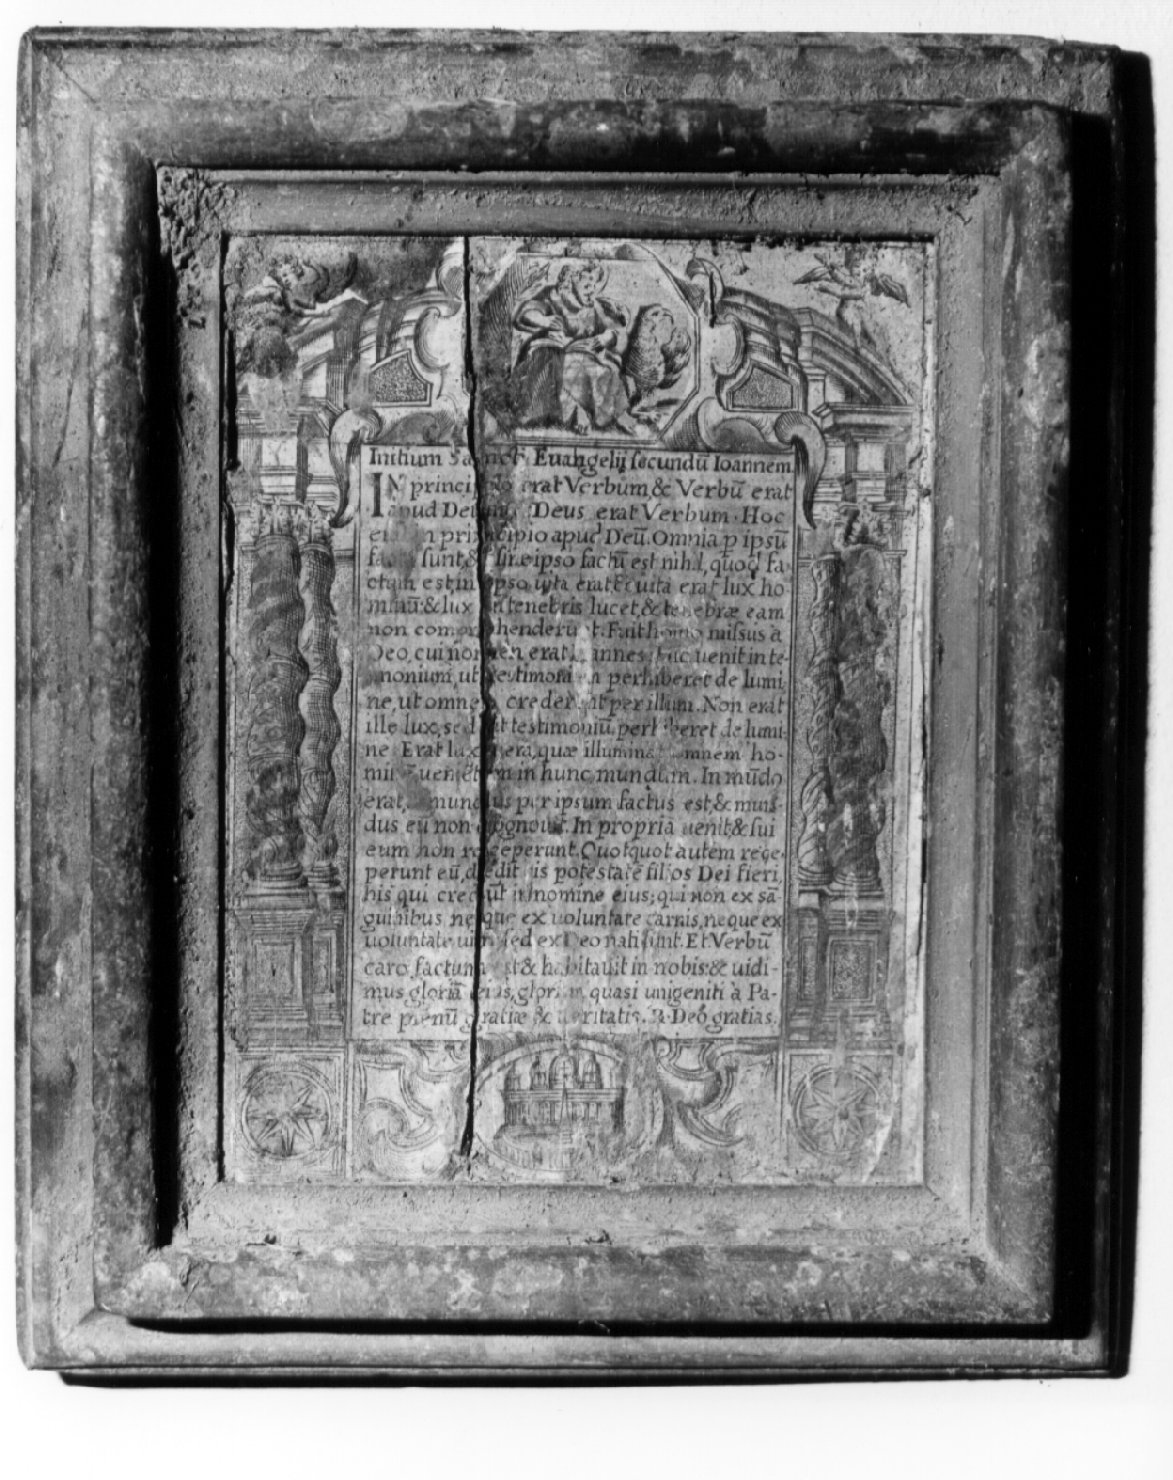 Initium Sancti Euangelij secundũ Ioannem
IN principio erat Verbum & Verbũ erat
apud Deum, Deus erat Verbum. Hoc
erat in principio apud Deũ. Omnia p ipsũ
facta sunt & sine ipso factũ est nihil, quod fa-
ctum est in ipso uita erat & uita erat lux ho
minũ: & lux in tenebris lucet & tenebræ eam
non comprehenderunt. Fuit homo missus à
Deo, cui nomen erat Ioannes. Hic uenit in te-
stimonium, ut testimoniũ perhiberet de lumi
ne, ut omnes crederent per illum. Non erat
ille lux, sed ut testimoniũ perhiberet de lumi-
ne. Erat lux uera, quæ illuminat omnem ho-
minẽ uenientem in hunc mundum. In mũdo
erat, & mundus per ipsum factus est & mun-
dus eũ non cognouit. In propria uenit & sui
eum non receperunt. Quotquot autem rece-
perunt eũ, dedit eis potestatẽ filios Dei fieri,
his qui credũt in nomine eius; qui non ex sã-
guinibus neque ex uoluntate carnis, neque ex
uoluntate uiri, sed ex Deo nati sunt. Et Verbũ
caro factum est & habitauit in nobis: & uidi-
mus gloriã eius, gloriam quasi unigeniti à Pa-
tre plenũ gratiæ & ueritatis. R. Deo gratias.